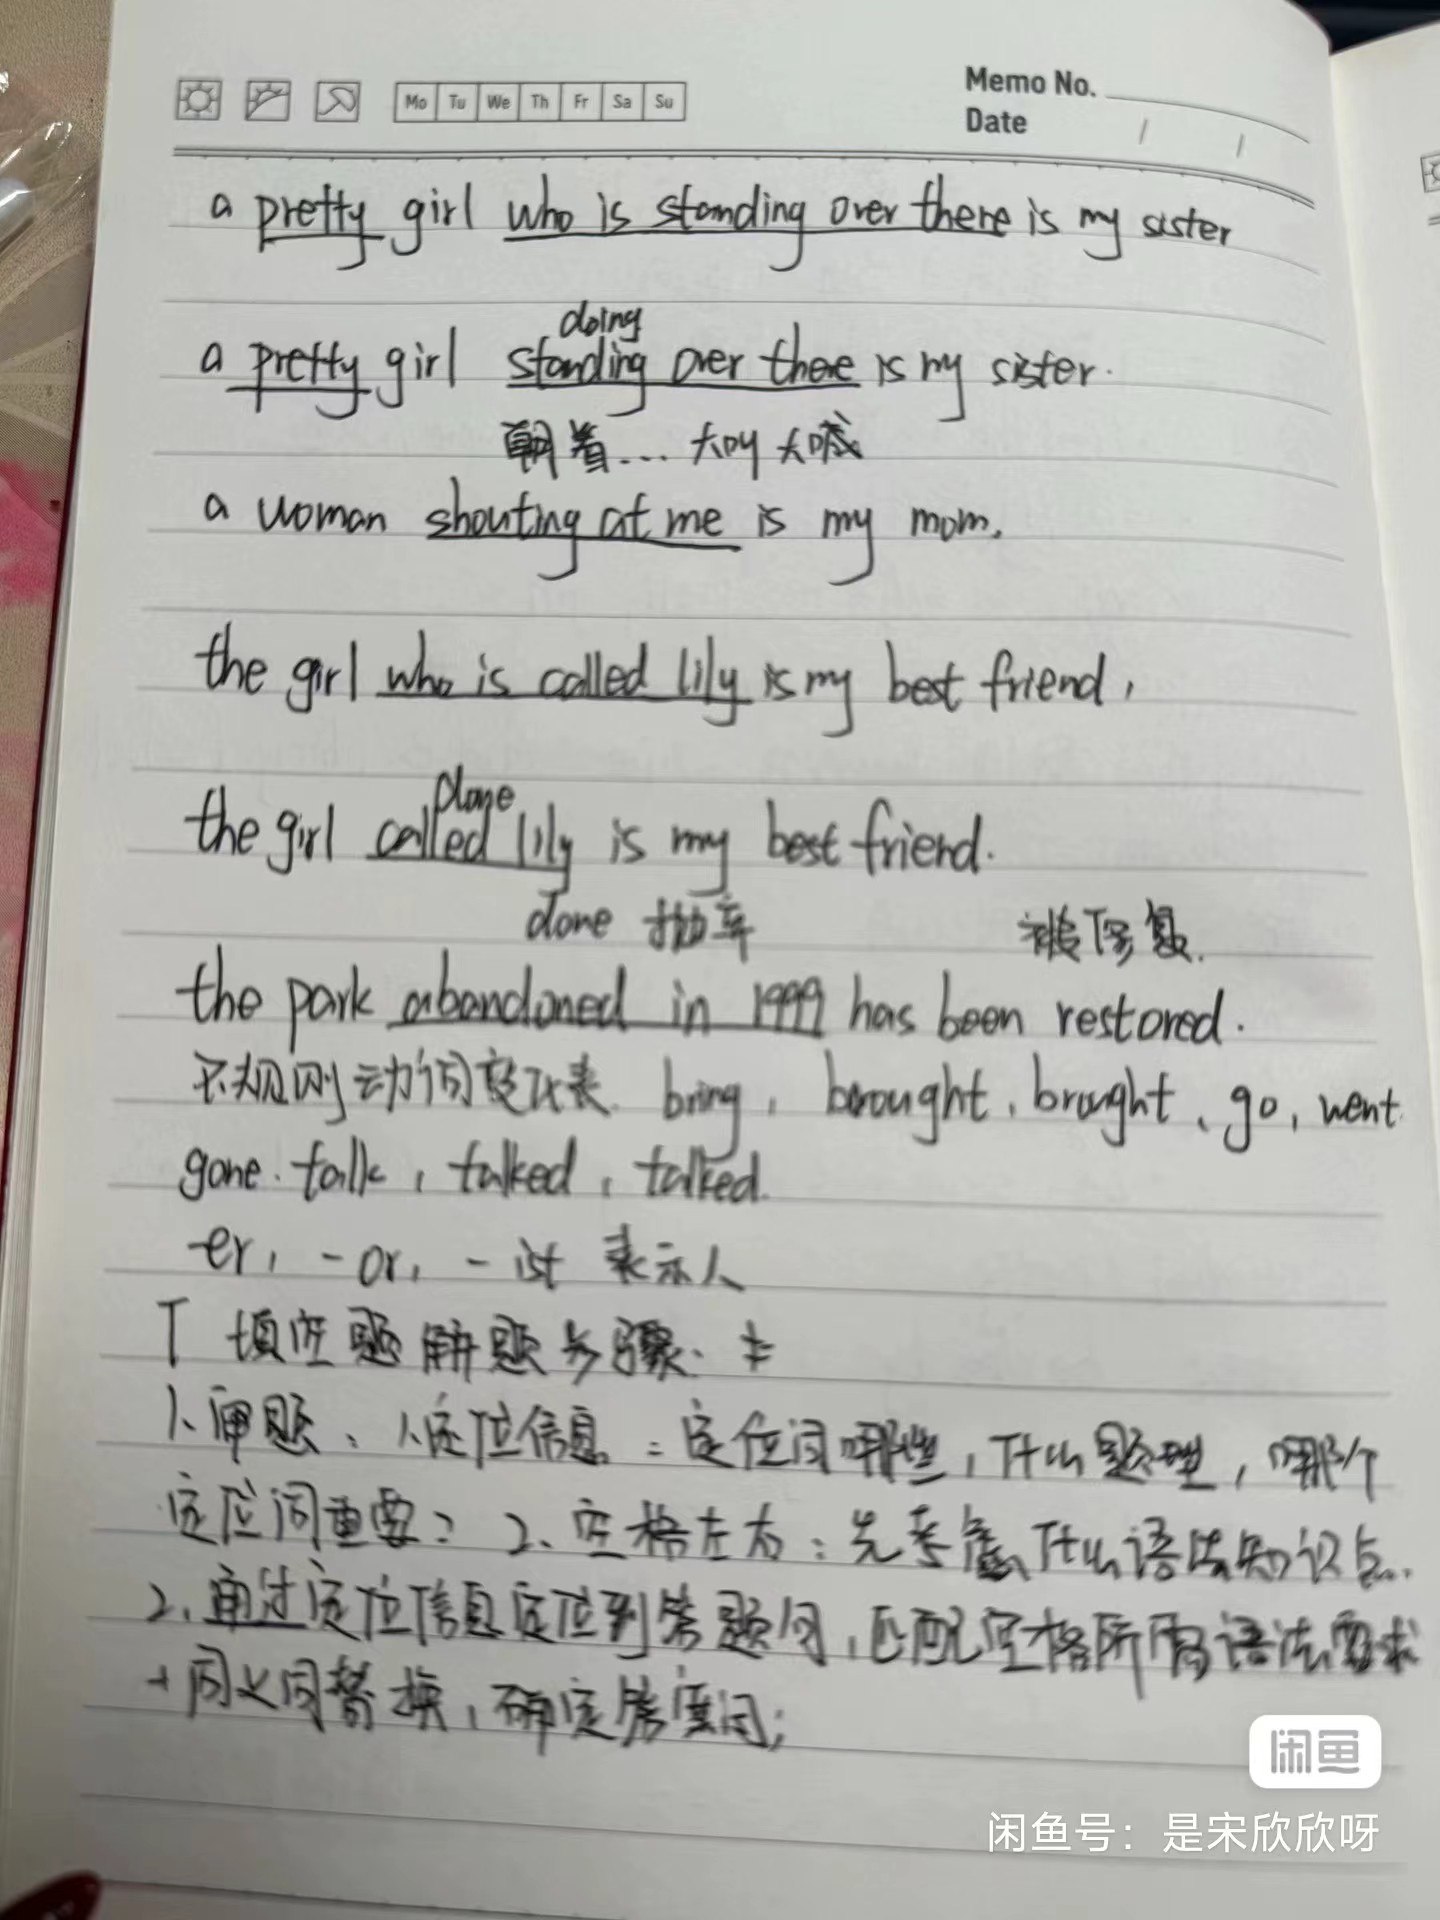 Mo Tu We Th Fr Sa Su
Memo No.
Date / /
a pretty girl who is standing over there is my sister
doing
a pretty girl standing over there is my sister.
朝着... 大叫大喊
a woman shouting at me is my mom.
the girl who is called lily is my best friend,
done
the girl called lily is my best friend.
done 抛弃 被修复.
the park abandoned in 1999 has been restored.
不规则动词变化表. bring, brought, brought, go, went
gone. talk, talked, talked.
-er, -or, -ist 表示人
T 填空题解题步骤.
1、审题、1、定位信息:定位词哪些,什么题型,哪个
定位词重要? 2、空格左右:先考虑什么语法知识点..
2、通过定位信息定位到答题句,匹配空格所需语法要求
+同义词替换,确定答案词;
闲鱼
闲鱼号:是宋欣欣呀